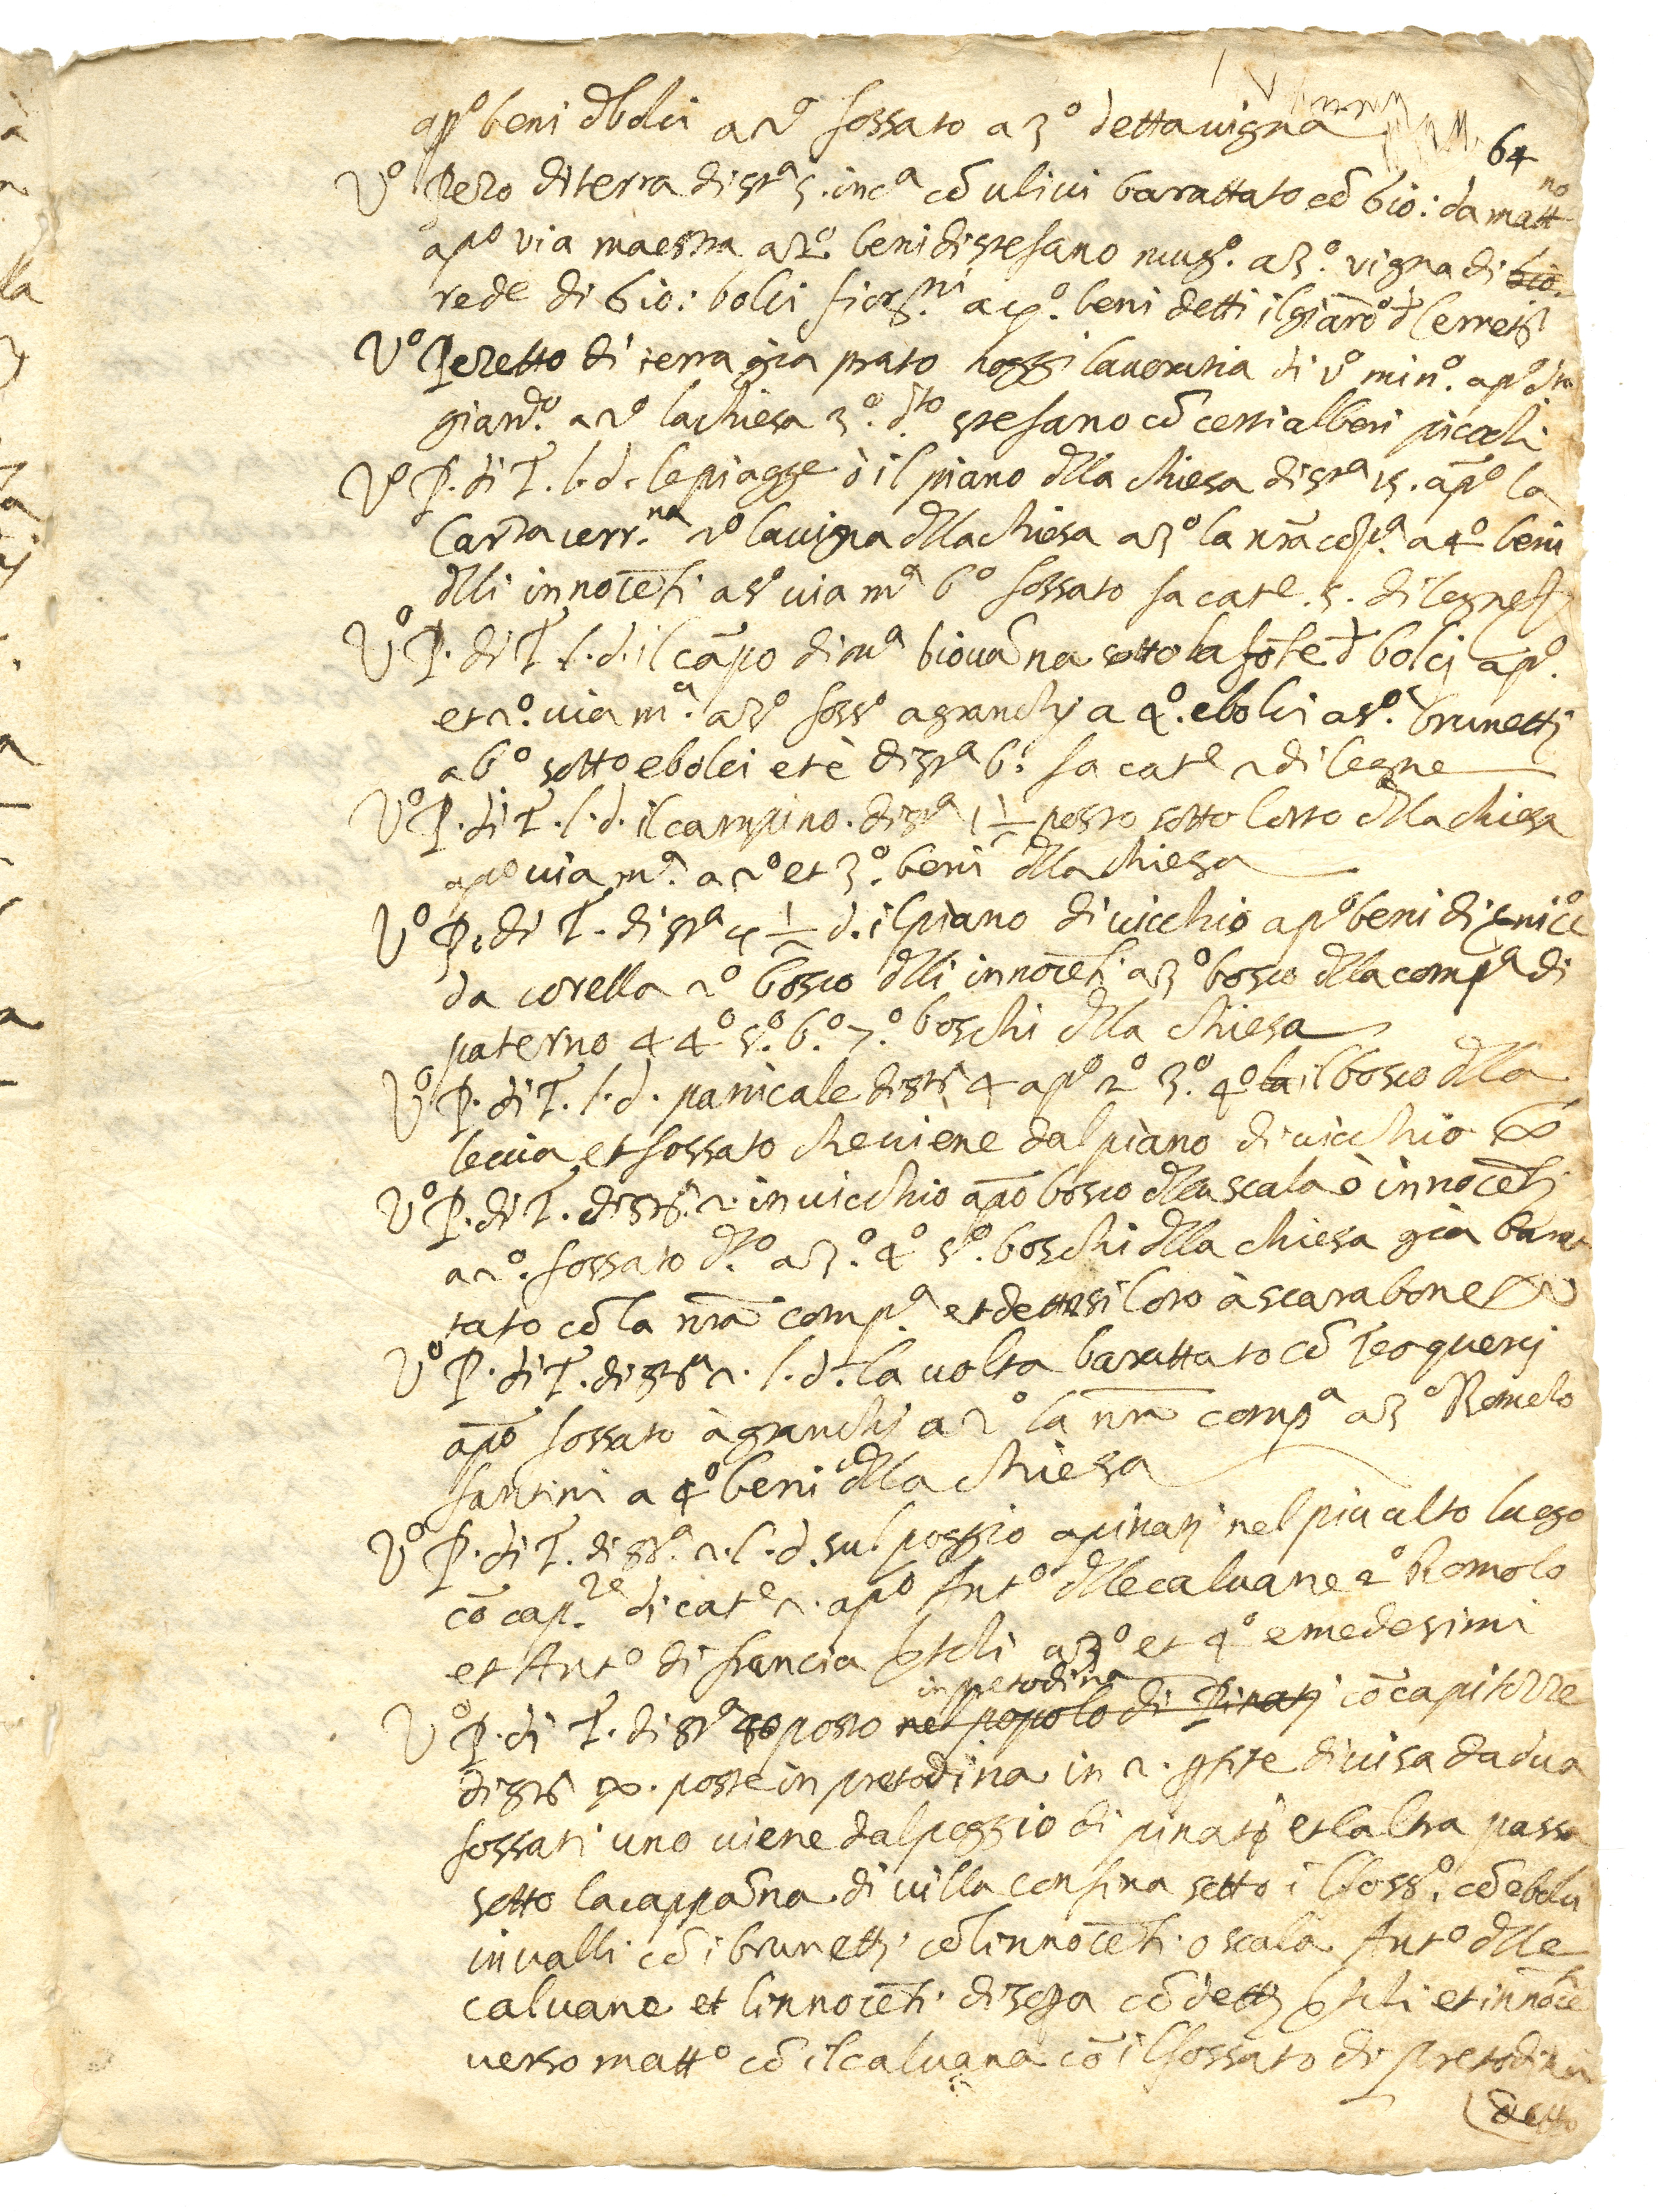 app.º beni d bolci a 2º fossato a 3º detta uigna
64
Vº Pezo di terra di st.ª 5. inc.ª cō uliui barattato cō Gio: da matt.no
apº via maestra a 2º beni di stefano mug.º a 3.º vigna di Gio.
rede di Gio: bolci fior.ni a 4º. beni detti il giarōº d Cerreti
Vº Pezetto di terra gia prato hoggi lauoratia di vº min.º apº d.to
giard.º a 2º la chiesa 3.º d.to stefano cō certi alberi picoli
Vº P. di T. l. d. le piagge ò il piano dlla chiesa di st.ª 15. āpº la
Carra uerr.na 2º la uigna dlla chiesa a 3º la nrā cōp.ª a 4º beni
dlli innocēti a 5º uia mª 6º fossato fa cat.e 5. di legne
Vº P. di T. l. d. il cāpo di mª Giouāna sotto la fōte d bolci āpº.
et 2º. uia m.ª a 3º foss.º a granchi a 4º. e bolci a 5º. brunetti
a 6º sotto e bolci et è di st.ª 6. fa cat.e 2 di legne
Vº P. di T. l. d. il campino. di st.ª 1 1/2 posto sotto lorto dlla chiesa
apº uia m.ª a 2º et 3.º beni dlla chiesa
Vº P. di T. di st.ª 4 1/2 d. il piano di uicchio a pº beni di nicº
da corella 2º bosco dlli innocēti a 3º bosco dlla comp.ª di
paterno a 4º 5º. 6º. 7.º boschi dlla chiesa
Vº P. di T. l. d. panicale di st.ª 4 apº 2º 3.º 4º la il bosco dlla
leccia et fossato che uiene dal piano di uicchio
Vº P. di T. di st.ª 2. in uicchio apō bosco dlla scala ò innocēti
a 2º. fossato d.to a 3.º 4º 5º. boschi dlla chiesa gia barat
tato cō la nrā comp.ª et dettesi loro à scarabone
Vº P. di T. di st.ª 2. l. d. la uolta barattato cō Teo querci
apō fossato à granchi a 2º la nrā comp.ª a 3º Romolo
santini a 4º beni dlla chiesa
Vº P. di T. di st.ª 2. l. d. sul poggio a pinati nel piu alto luogo
cō cap.re di cat.e 2. apº Antº dlle caluane 2º Romolo
et Antº di francia a 3º et 4º e medesimi
in pretodina
Vº P. di T. di st.ª posto nel popolo di Pinati cō capitozze
di st.ª posте in pretodina in 2. parte diuisa da dua
fossati uno uiene dal poggio di pinati et laltra passa
sotto la cappāna di uilla confina sotto il foss.º cō e bolci
in ualli cō i brunetti cō linnocēti o scala Antº dlle
caluane et linnocēti di sopra cō detti et innocē
uerso matt.º cō il caluana cō il fossato di pretodina
detto